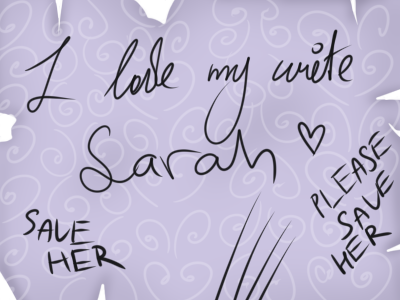 I love my
Sarah ♡
SAVE
HER
PLEASE
SAVE
HER